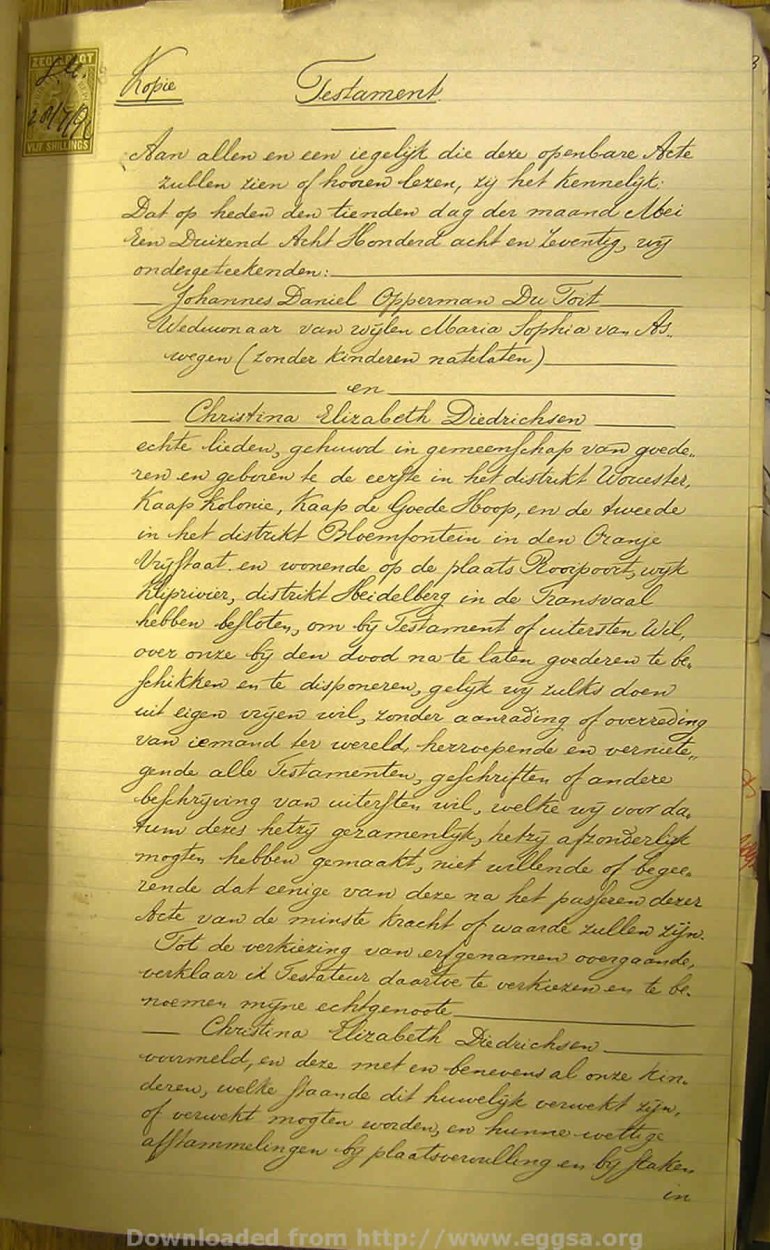 ZEGELREGT
VIJF SHILLINGS
Kopie
Testament
Aan allen en een iegelijk die deze openbare Acte
zullen zien of hooren lezen, zij het kennelijk:
Dat op heden den tienden dag der maand Mei
Een Duizend Acht Honderd acht en Zeventig, wij
ondergeteekenden:
Johannes Daniel Opperman Du Toit
Weduwnaar van wijlen Maria Sophia van As„
wegen (zonder kinderen natelaten)
en
Christina Elizabeth Diedrichsen
echte lieden, gehuwd in gemeenschap van goede„
ren en geboren te de eerste in het distrikt Worcester,
Kaap Kolonie, Kaap de Goede Hoop, en de tweede
in het distrikt Bloemfontein in den Oranje
Vrijstaat en wonende op de plaats Rooipoort, wijk
Kliprivier, distrikt Heidelberg in de Transvaal
hebben besloten, om bij Testament of uitersten Wil,
over onze bij den dood na te laten goederen te be„
schikken en te disponeren, gelijk wij zulks doen
uit eigen vrijen wil, zonder aanrading of overreding
van iemand ter wereld, herroepende en verniete„
gende alle Testamenten, geschriften of andere
beschrijving van uitersten wil, welke wij voor da„
tum dezes hetzij gezamenlijk, hetzij afzonderlijk
mogten hebben gemaakt, niet willende of begee„
rende dat eenige van deze na het passeren dezer
Acte van de minste kracht of waarde zullen zijn.
Tot de verkiezing van erfgenamen overgaande,
verklaar ik Testateur daartoe te verkiezen en te be„
noemen mijne echtgenoote
Christina Elizabeth Diedrichsen
voormeld, en deze met en benevens al onze kin„
deren, welke staande dit huwelijk verwekt zijn,
of verwekt mogten worden, en hunne wettige
afstammelingen bij plaatsvervulling en bij staken
in
Downloaded from http://www.eggsa.org